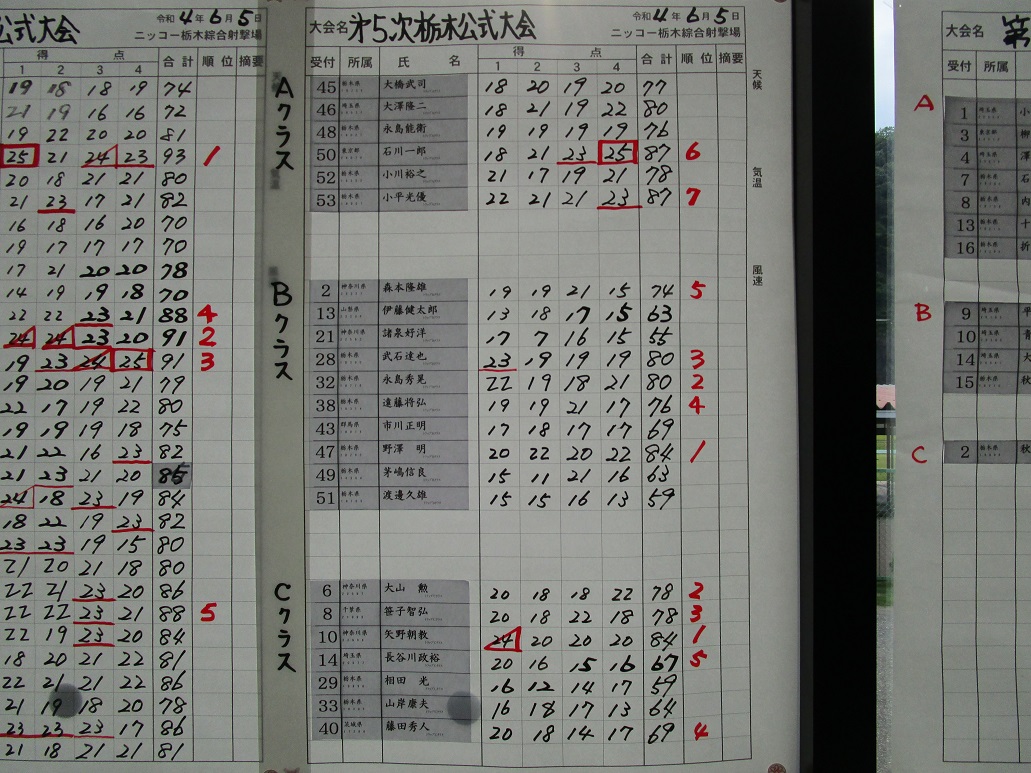 公式大会 令和 4 年 6 月 5 日
ニッコー栃木綜合射撃場
得 点 合計 順位 摘要
1 2 3 4
19 18 18 19 74
21 19 16 16 72
19 22 20 20 81
25 21 24 23 93 1
20 18 21 21 80
21 23 17 21 82
16 18 16 20 70
19 17 17 17 70
17 21 20 20 78
14 19 19 18 70
22 22 23 21 88 4
24 24 23 20 91 2
19 23 24 25 91 3
19 20 19 21 79
22 17 19 22 80
19 19 19 18 75
21 22 16 23 82
21 23 21 20 85
24 18 23 19 84
18 22 19 23 82
23 23 19 15 80
21 20 21 18 80
22 21 23 20 86
22 22 23 21 88 5
22 19 23 20 84
18 20 21 22 81
22 21 21 22 86
21 19 18 20 78
23 23 23 17 86
21 18 21 21 81
大会名 才5次栃木公式大会 令和 4 年 6 月 5 日
ニッコー栃木綜合射撃場
受付 所属 氏 名 得 点 合計 順位 摘要
1 2 3 4
天候
気温
風速
Aクラス
45 栃木県 大橋武司 18 20 19 20 77
46 埼玉県 大澤隆二 18 21 19 22 80
48 栃木県 永島能衛 19 19 19 19 76
50 東京都 石川一郎 18 21 23 25 87 6
52 栃木県 小川裕之 21 17 19 21 78
53 栃木県 小平光優 22 21 21 23 87 7
Bクラス
2 神奈川県 森本隆雄 19 19 21 15 74 5
13 山梨県 伊藤健太郎 13 18 17 15 63
21 神奈川県 諸泉好洋 17 7 16 15 55
28 栃木県 武石達也 23 19 19 19 80 3
32 栃木県 永島秀晃 22 19 18 21 80 2
38 栃木県 遠藤将弘 19 19 21 17 76 4
43 群馬県 市川正明 17 18 17 17 69
47 栃木県 野澤 明 20 22 20 22 84 1
49 栃木県 茅嶋信良 15 11 21 16 63
51 栃木県 渡邊久雄 15 15 16 13 59
Cクラス
6 神奈川県 大山 勲 20 18 18 22 78 2
8 千葉県 笹子智弘 20 18 22 18 78 3
10 神奈川県 矢野朝教 24 20 20 20 84 1
14 埼玉県 長谷川政裕 20 16 15 16 67 5
29 栃木県 相田 光 16 12 14 17 59
33 栃木県 山岸康夫 16 18 17 13 64
40 茨城県 藤田秀人 20 18 14 17 69 4
大会名
受付 所属
A
1 埼玉県 小
3 東京都 栁
4 埼玉県 澤
7 栃木県 石
8 栃木県 内
13 栃木県 十
16 栃木県 折
B
9 埼玉県 平
10 埼玉県 青
14 埼玉県 大
15 栃木県 秋
C
2 栃木県 秋